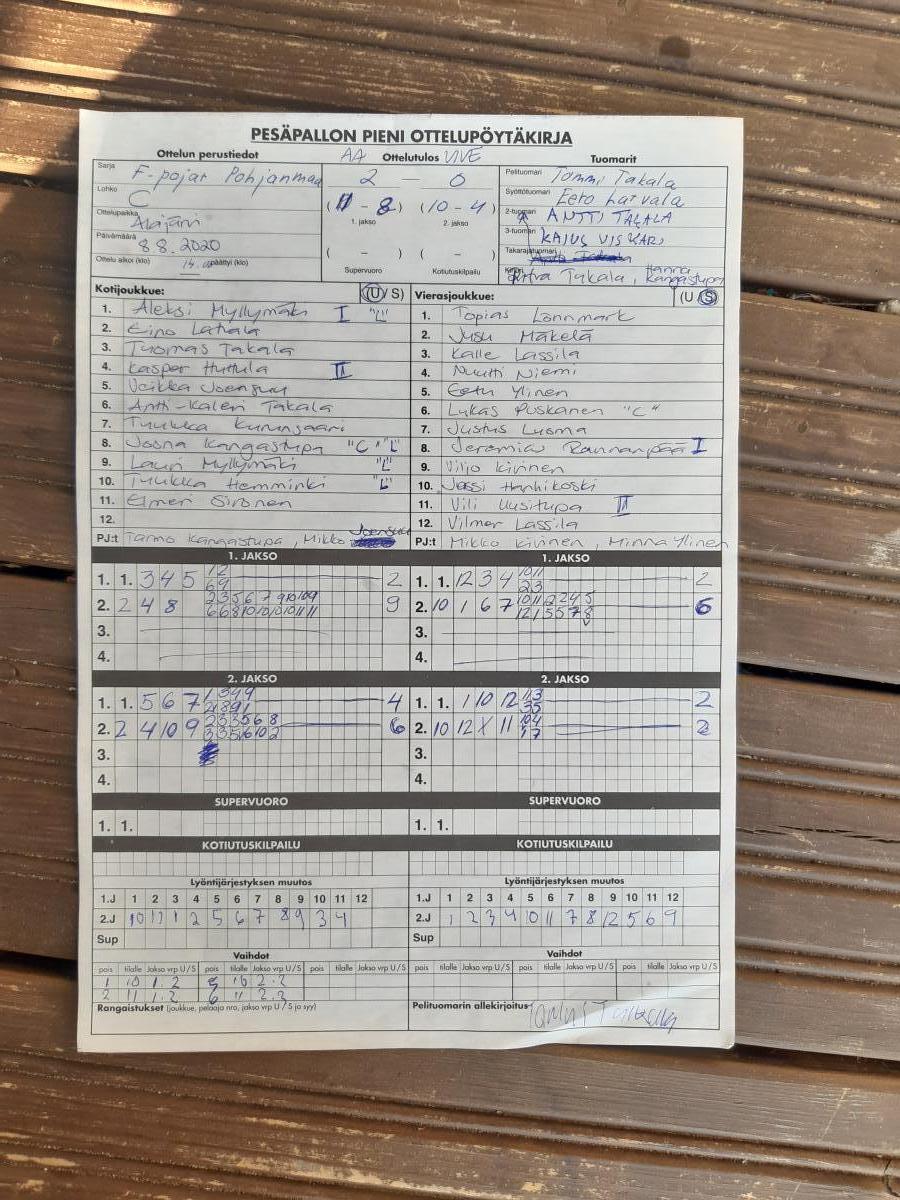 PESÄPALLON PIENI OTTELUPÖYTÄKIRJA
Ottelun perustiedot
AA Ottelutulos VIVE
Tuomarit
Sarja F-pojat Pohjanmaa
Lohko C
Ottelupaikka Alajärvi
Päivämäärä 8.8.2020
Ottelu alkoi (klo) päättyi (klo)
2 — 0
(11 - 8) (10 - 4)
1. jakso 2. jakso
( - ) ( - )
Supervuoro Kotiutuskilpailu
Pelituomari Tommi Takala
Syöttötuomari Eero Latvala
2-tuomari ANTTI TAKALA
3-tuomari KAJUS VISKARI
Takarajatuomari
Kirjuri Takala, Hanna Kangastupa
Kotijoukkue: (U / S)
1. Aleksi Myllymäki I "L"
2. Eino Latvala
3. Tuomas Takala
4. Kasper Huttula II
5. Veikka Joensuu
6. Antti-Kaleri Takala
7. Tuukka Kurunsaari
8. Joona Kangastupa "C" "L"
9. Lauri Myllymäki "L"
10. Tuukka Hemminki "L"
11. Elmeri Sironen
12.
PJ:t Tarmo Kangastupa, Mikko Joensuu
Vierasjoukkue: (U / S)
1. Topias Lönnmark
2. Jusu Mäkelä
3. Kalle Lassila
4. Nuutti Niemi
5. Eetu Ylinen
6. Lukas Puskanen "C"
7. Justus Luoma
8. Jeremias Rannanpää I
9. Viljo Kivinen
10. Jessi Hanhikoski
11. Vili Uusitupa II
12. Vilmer Lassila
PJ:t Mikko Kivinen, Minna Ylinen
1. JAKSO
1. 1. 3 4 5 2
2. 2 4 8 9
3.
4.
1. JAKSO
1. 1. 12 3 4 2
2. 10 1 6 7 6
3.
4.
2. JAKSO
1. 1. 5 6 7 4
2. 2 4 10 9 6
3.
4.
2. JAKSO
1. 1. 1 10 12 2
2. 10 12 X 11 2
3.
4.
SUPERVUORO
1. 1.
SUPERVUORO
1. 1.
KOTIUTUSKILPAILU
KOTIUTUSKILPAILU
Lyöntijärjestyksen muutos
1.J 1 2 3 4 5 6 7 8 9 10 11 12
2.J 10 11 1 2 5 6 7 8 9 3 4
Sup
Lyöntijärjestyksen muutos
1.J 1 2 3 4 5 6 7 8 9 10 11 12
2.J 1 2 3 4 10 11 7 8 12 5 6 9
Sup
Vaihdot
pois tilalle Jakso vrp U/S pois tilalle Jakso vrp U/S pois tilalle Jakso vrp U/S
1 10 1.2 5 10 2.2
2 11 1.2 6 11 2.2
Vaihdot
pois tilalle Jakso vrp U/S pois tilalle Jakso vrp U/S pois tilalle Jakso vrp U/S
Rangaistukset (joukkue, pelaaja nro, jakso vrp U/S ja syy)
Pelituomarin allekirjoitus